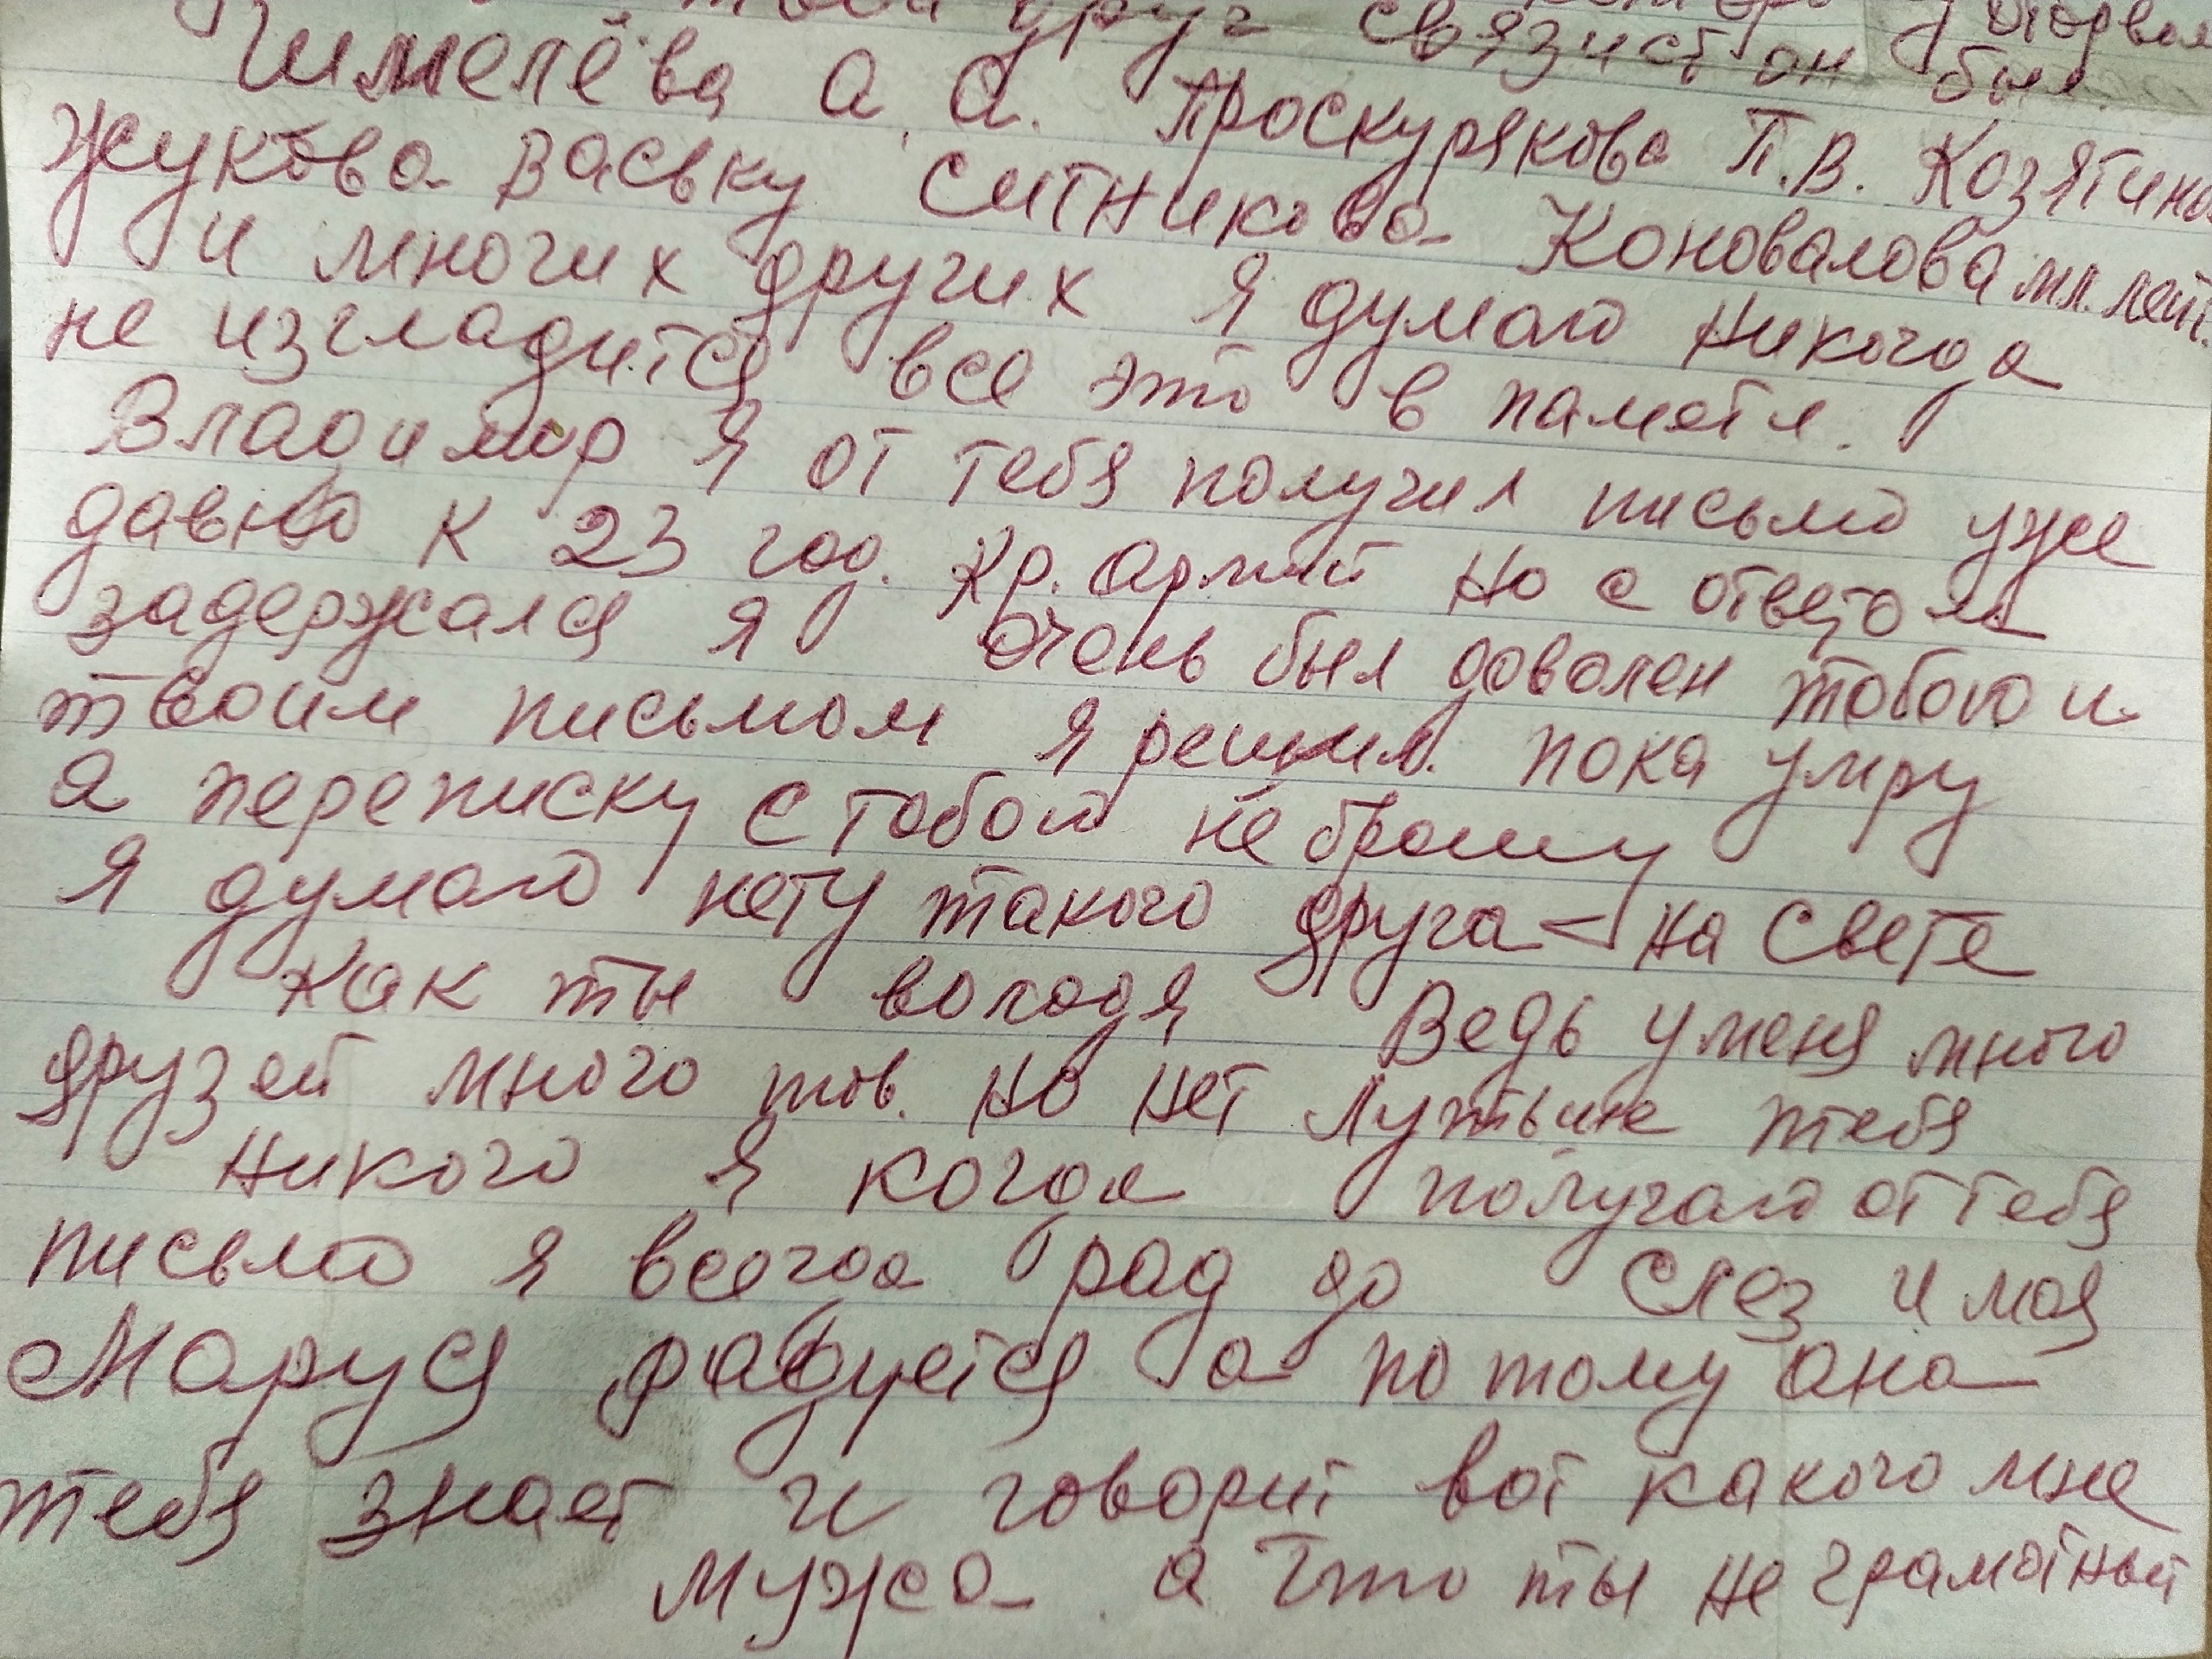 твой друг связист он был
Шмелёва А. А. Проскурякова П.В. Козятино
Жукова Ваську Ситникова Коновалова мл. лейт.
и многих других Я думаю никогда
не изгладится все это в памяти.
Владимир Я от тебя получил письмо уже
давно к 23 год. Кр. армий но с ответом
задержался я очень был доволен тобою и
твоим письмом я решил. пока умру
я переписку с тобой не брошу
Я думаю нету такого друга на свете
как ты володя Ведь у меня много
друзей много тов. но нет лутьше тебя
никого Я когда получаю от тебя
письмо я всегда рад до слез и моя
Маруся радуется а потому она
тебя знает и говорит вот какого мне
мужа. а Что ты не грамотный